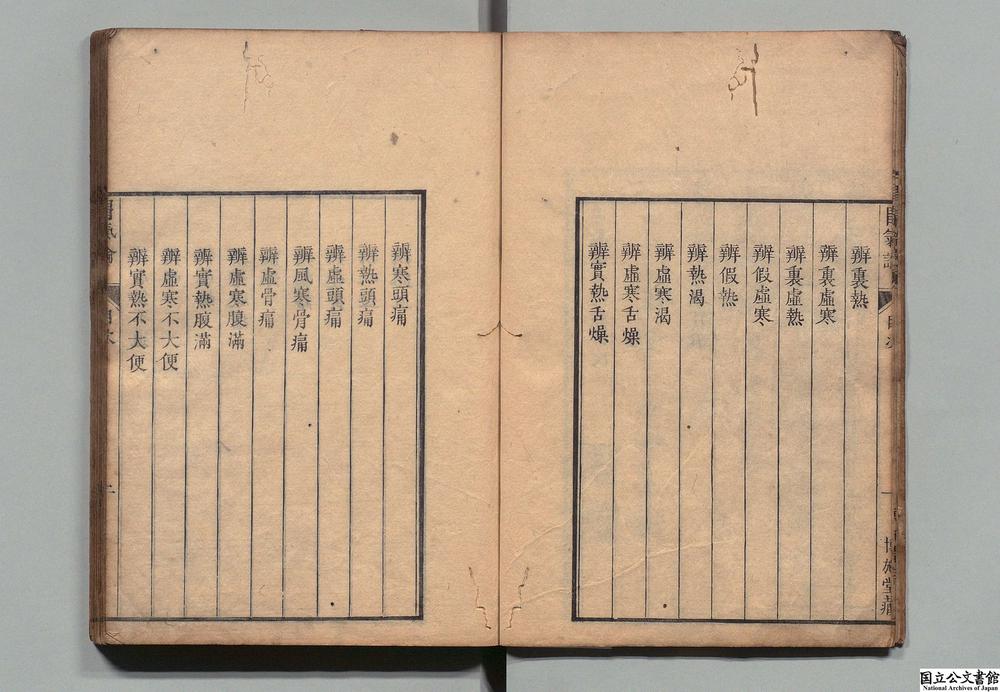 辨裏熱
辨裏虛寒
辨裏虛熱
辨假虛寒
辨假熱
辨熱渴
辨虛寒渴
辨虛寒舌燥
辨實熱舌燥
目次
一
博施堂藏
辨寒頭痛
辨熱頭痛
辨虛頭痛
辨風寒骨痛
辨虛骨痛
辨虛寒腹滿
辨實熱腹滿
辨虛寒不大便
辨實熱不大便
国立公文書館
National Archives of Japan